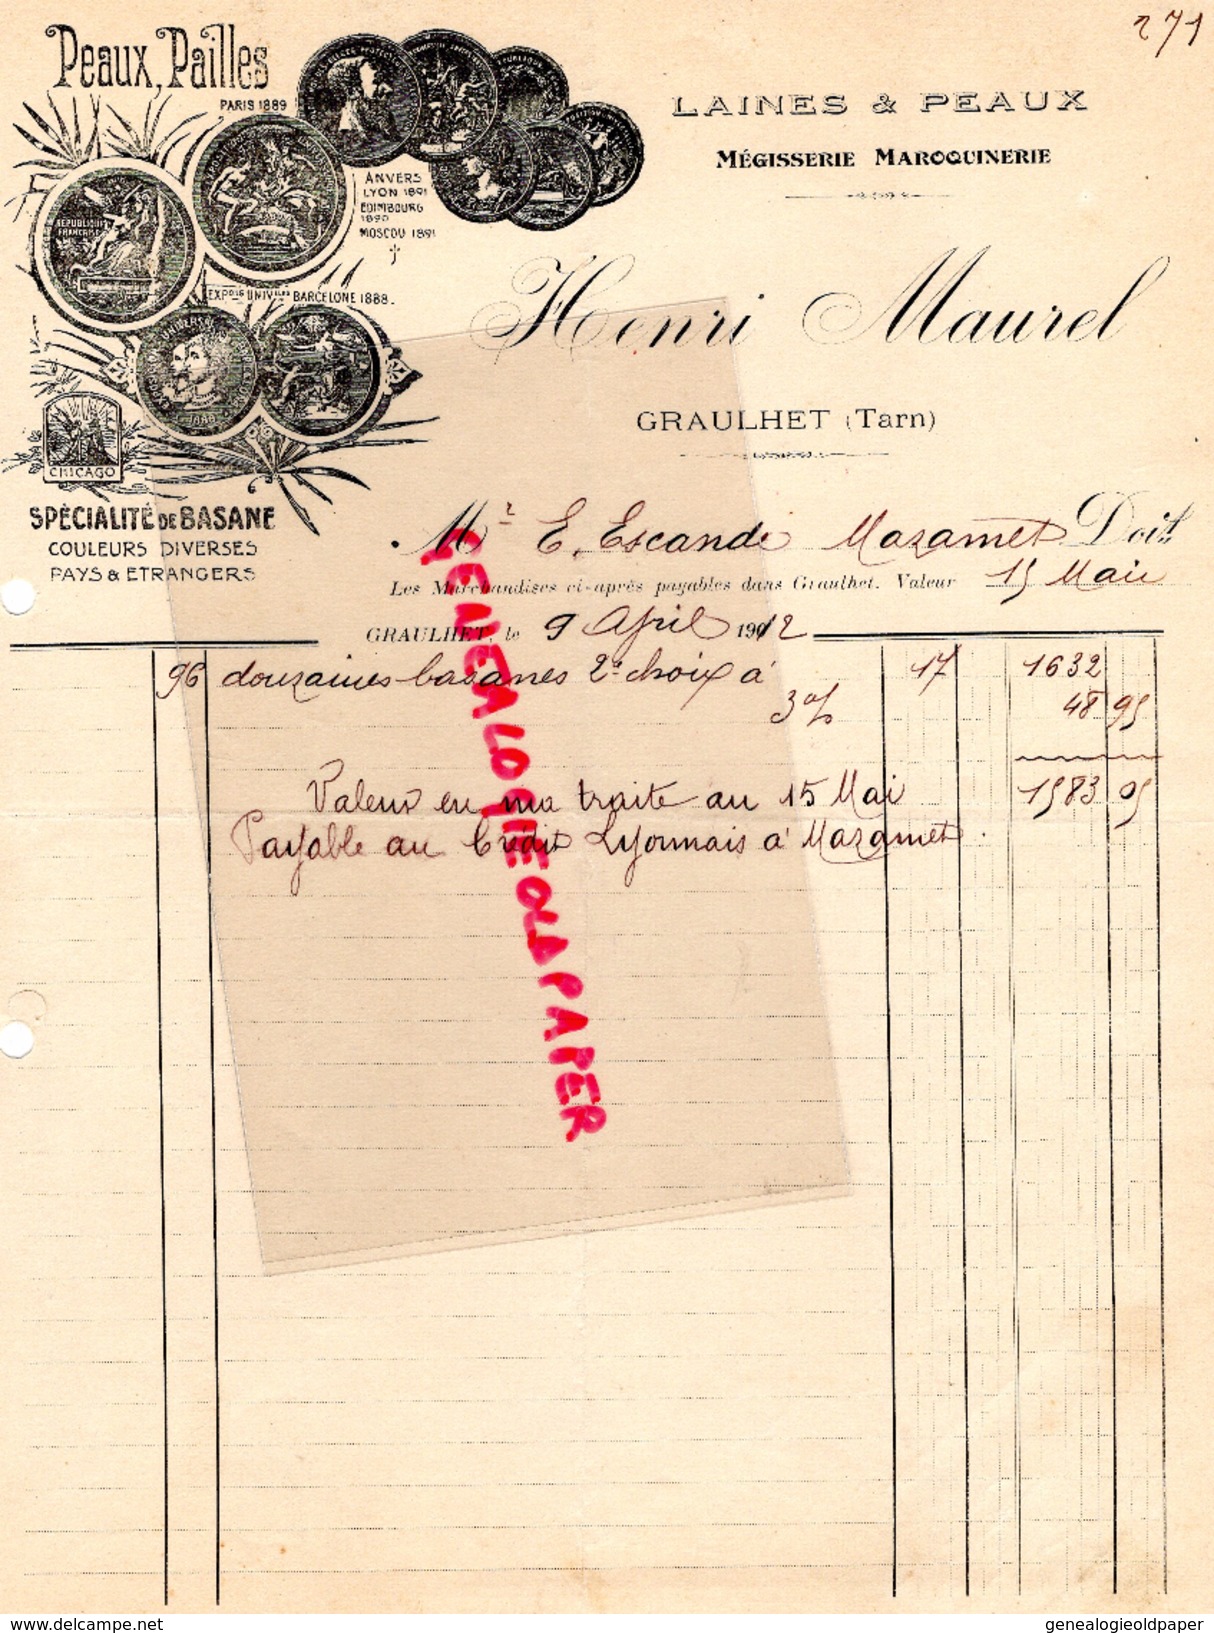 271
Peaux, Pailles
PARIS 1889
ANVERS
LYON 1891
EDIMBOURG
1890
MOSCOU 1891
RÉPUBLIQUE
FRANÇAISE
EXPOns UNIVlles BARCELONE 1888.
1888
CHICAGO
SPÉCIALITÉ DE BASANE
COULEURS DIVERSES
PAYS & ETRANGERS
LAINES & PEAUX
MÉGISSERIE MAROQUINERIE
Henri Maurel
GRAULHET (Tarn)
Mr E. Escande Mazamet Doit
Les Marchandises ci-après payables dans Graulhet. Valeur 15 Mai
GRAULHET, le 9 Avril 1912
96 douzaines basanes 2e choix à 17 1632
3 % 48 95
1583 05
Valeur en ma traite au 15 Mai
Payable au Crédit Lyonnais à Mazamet.
GENEALOGIEOLDPAPER
delcampe.net
genealogieoldpaper